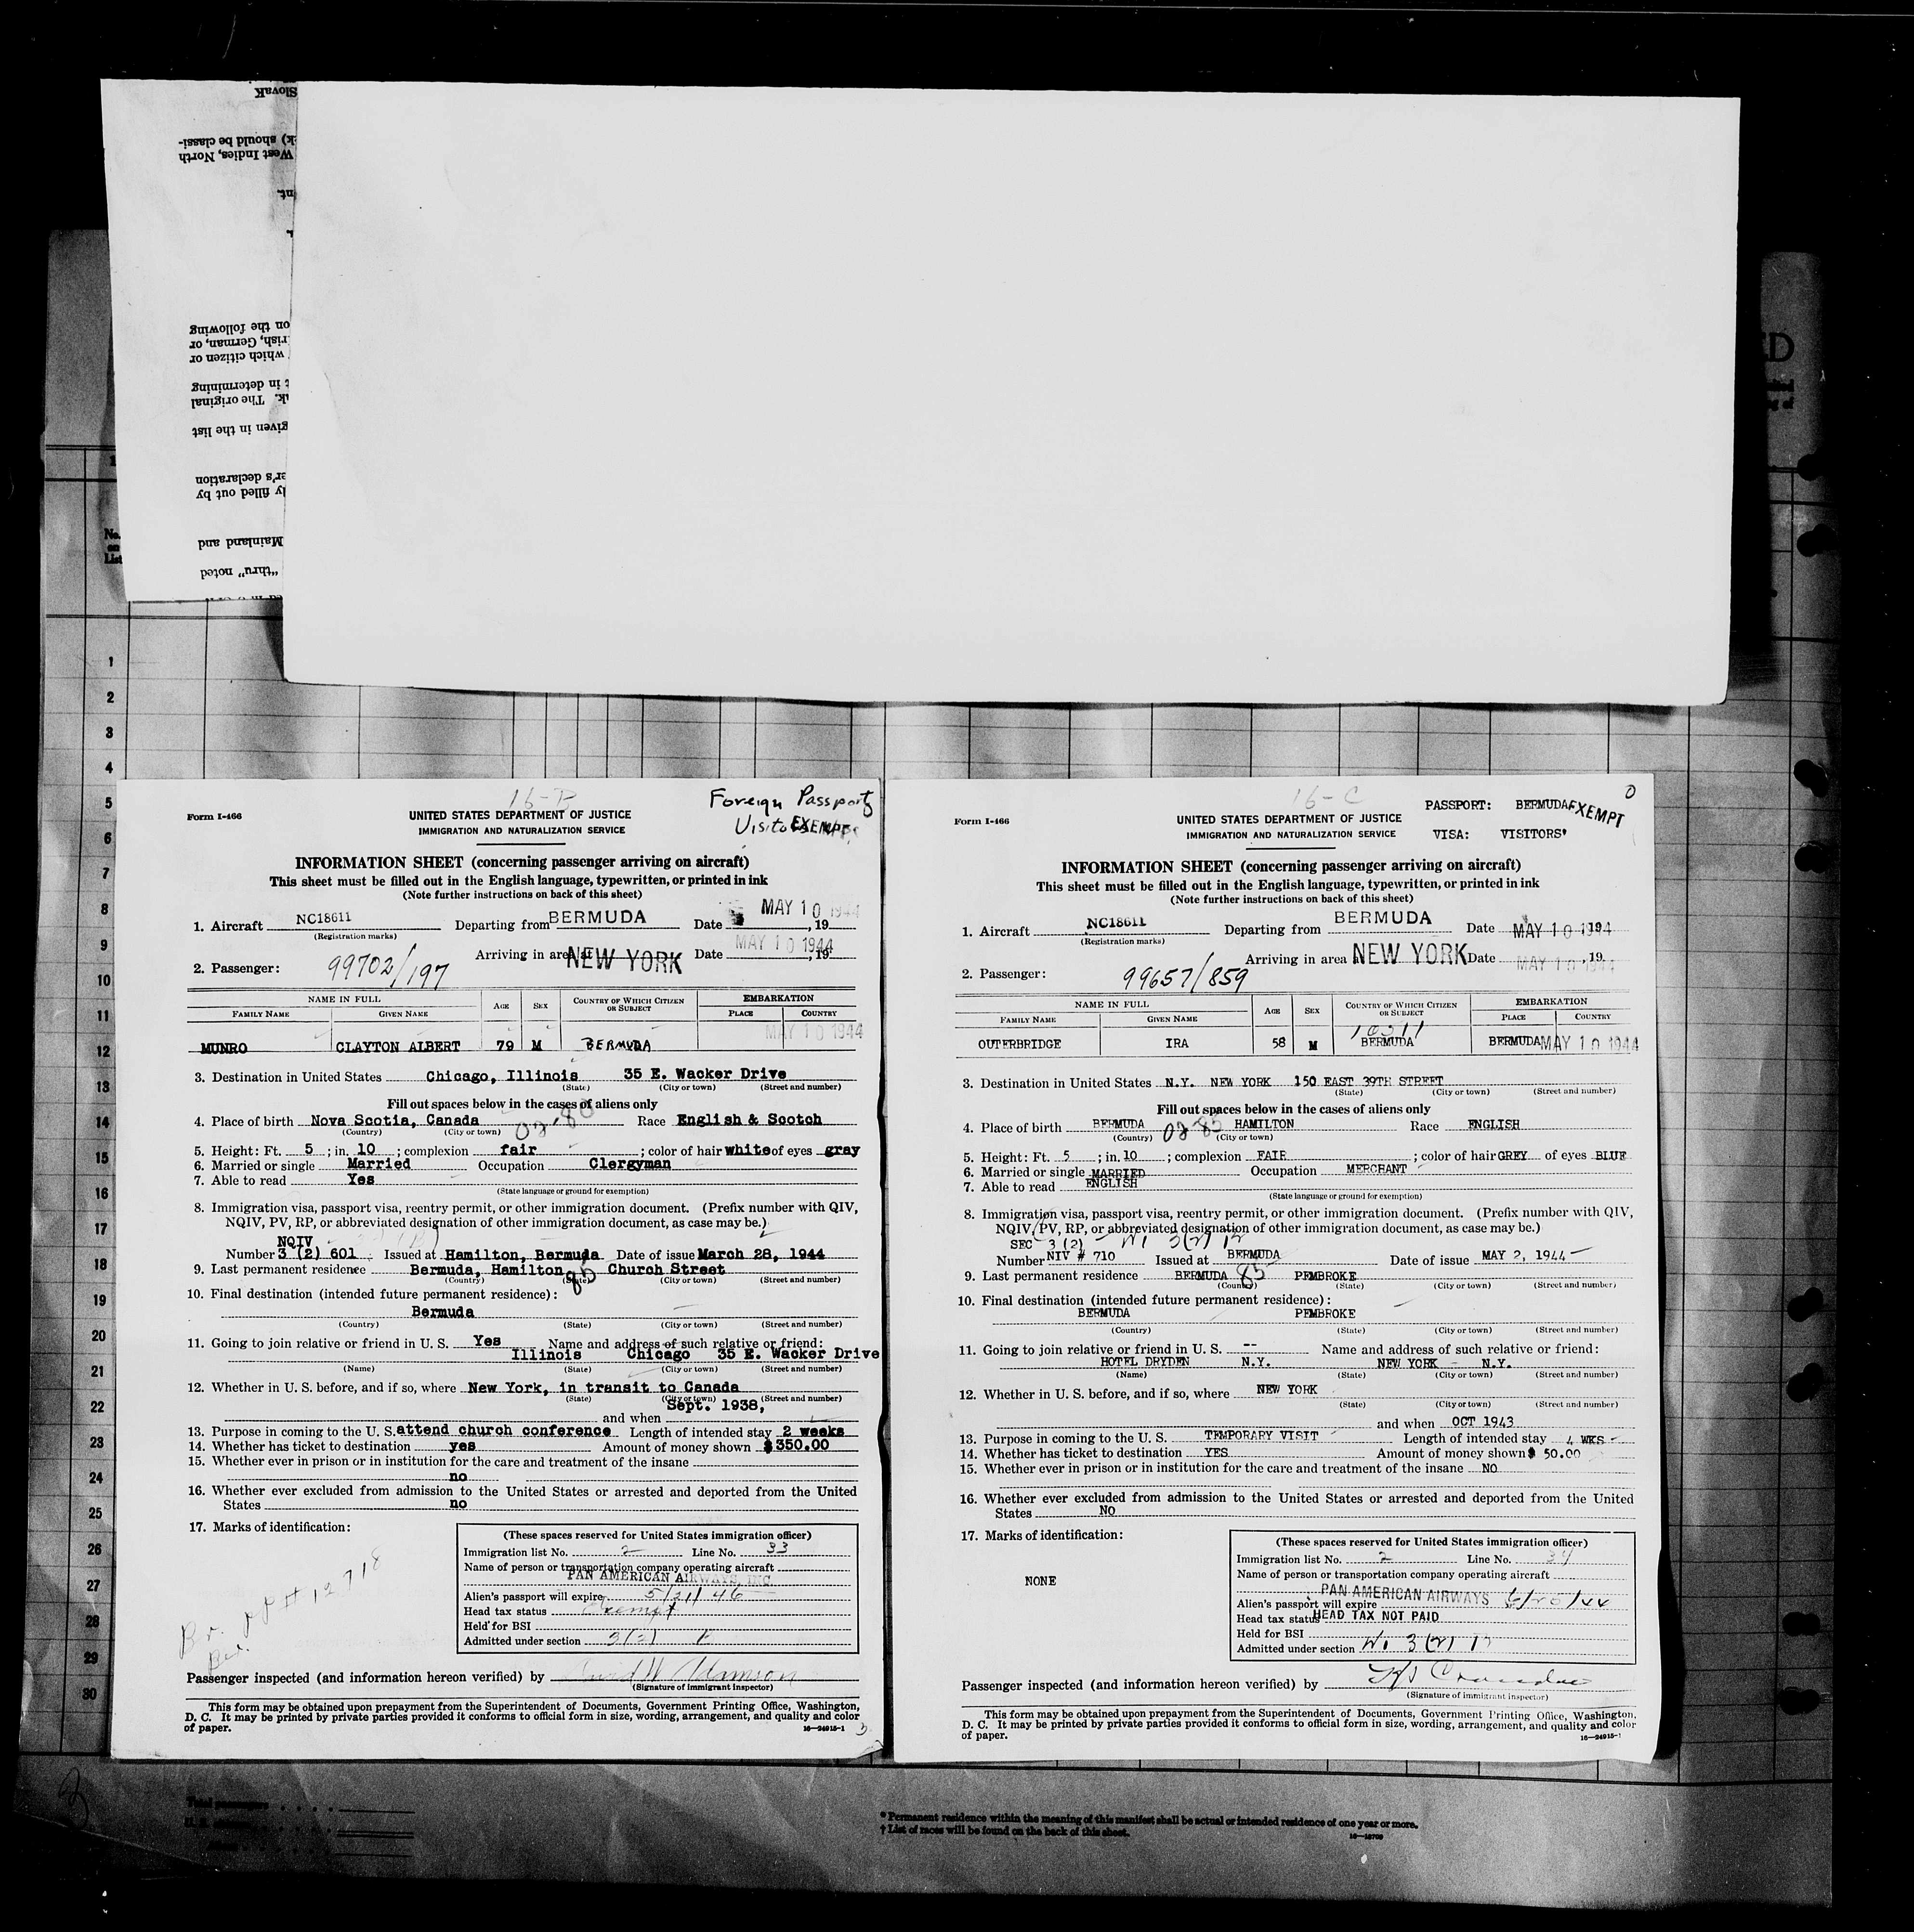 SlovaK
k) should be classi-
West Indies, North
nt.
on the following
rish, German, or
which citizen or
t in determining
k. The original
given in the list
er's declaration
ly filled out by
Mainland and
"thru" noted
No.
on
List
1
2
3
4
5
6
7
8
9
10
11
12
13
14
15
16
17
18
19
20
21
22
23
24
25
26
27
28
29
30
16-B
Foreign Passport
EXEMPT
Form I-466
UNITED STATES DEPARTMENT OF JUSTICE
IMMIGRATION AND NATURALIZATION SERVICE
INFORMATION SHEET (concerning passenger arriving on aircraft)
This sheet must be filled out in the English language, typewritten, or printed in ink
(Note further instructions on back of this sheet)
1. Aircraft NC18611 Departing from BERMUDA Date MAY 10 1944, 19
(Registration marks)
Arriving in area NEW YORK Date MAY 10 1944, 19
2. Passenger: 99702/197
NAME IN FULL AGE SEX COUNTRY OF WHICH CITIZEN OR SUBJECT EMBARKATION
FAMILY NAME GIVEN NAME PLACE COUNTRY
MAY 10 1944
MUNRO CLAYTON ALBERT 79 M BERMUDA
3. Destination in United States Chicago, Illinois 35 E. Wacker Drive
(State) (City or town) (Street and number)
Fill out spaces below in the cases of aliens only
4. Place of birth Nova Scotia, Canada Race English & Scotch
(Country) (City or town) 02-80
5. Height: Ft. 5; in. 10; complexion fair; color of hair white of eyes gray
6. Married or single Married Occupation Clergyman
7. Able to read Yes
(State language or ground for exemption)
8. Immigration visa, passport visa, reentry permit, or other immigration document. (Prefix number with QIV,
NQIV, PV, RP, or abbreviated designation of other immigration document, as case may be.)
NQIV
Number 3 (2) 601 Issued at Hamilton, Bermuda Date of issue March 28, 1944
9. Last permanent residence Bermuda, Hamilton 85 Church Street
(Country) (State) (City or town) (Street and number)
10. Final destination (intended future permanent residence):
Bermuda
(Country) (State) (City or town) (Street and number)
11. Going to join relative or friend in U. S. Yes Name and address of such relative or friend:
Illinois Chicago 35 E. Wacker Drive
(Name) (State) (City or town) (Street and number)
12. Whether in U. S. before, and if so, where New York, in transit to Canada
(State) (City or town) (Street and number)
Sept. 1938,
and when
13. Purpose in coming to the U. S. attend church conference Length of intended stay 2 weeks
14. Whether has ticket to destination yes Amount of money shown $350.00
15. Whether ever in prison or in institution for the care and treatment of the insane
no
16. Whether ever excluded from admission to the United States or arrested and deported from the United
States no
17. Marks of identification:
(These spaces reserved for United States immigration officer)
Immigration list No. 2 Line No. 33
Name of person or transportation company operating aircraft
PAN AMERICAN AIRWAYS, INC
Alien's passport will expire 5/21/46
Head tax status Exempt
Held for BSI
Admitted under section 3(2)
Br. PP # 12718
Passenger inspected (and information hereon verified) by David W Adamson
(Signature of immigrant inspector)
This form may be obtained upon prepayment from the Superintendent of Documents, Government Printing Office, Washington,
D. C. It may be printed by private parties provided it conforms to official form in size, wording, arrangement, and quality and color
of paper. 16—24915-1
3
16-C
PASSPORT: BERMUDA EXEMPT
VISA: VISITORS'
Form I-466
UNITED STATES DEPARTMENT OF JUSTICE
IMMIGRATION AND NATURALIZATION SERVICE
INFORMATION SHEET (concerning passenger arriving on aircraft)
This sheet must be filled out in the English language, typewritten, or printed in ink
(Note further instructions on back of this sheet)
1. Aircraft NC18611 Departing from BERMUDA Date MAY 10 1944
(Registration marks)
Arriving in area NEW YORK Date MAY 10 1944, 19
2. Passenger: 99657/859
NAME IN FULL AGE SEX COUNTRY OF WHICH CITIZEN OR SUBJECT EMBARKATION
FAMILY NAME GIVEN NAME PLACE COUNTRY
OUTERBRIDGE IRA 58 M BERMUDA BERMUDA MAY 10 1944
3. Destination in United States N.Y. NEW YORK 150 EAST 39TH STREET
(State) (City or town) (Street and number)
Fill out spaces below in the cases of aliens only
4. Place of birth BERMUDA 02-85 HAMILTON Race ENGLISH
(Country) (City or town)
5. Height: Ft. 5; in. 10; complexion FAIR; color of hair GREY of eyes BLUE
6. Married or single MARRIED Occupation MERCHANT
7. Able to read ENGLISH
(State language or ground for exemption)
8. Immigration visa, passport visa, reentry permit, or other immigration document. (Prefix number with QIV,
NQIV, PV, RP, or abbreviated designation of other immigration document, as case may be.)
SEC 3 (2)
Number NIV # 710 Issued at BERMUDA Date of issue MAY 2, 1944
9. Last permanent residence BERMUDA 85 PEMBROKE
(Country) (State) (City or town) (Street and number)
10. Final destination (intended future permanent residence):
BERMUDA PEMBROKE
(Country) (State) (City or town) (Street and number)
11. Going to join relative or friend in U. S. -- Name and address of such relative or friend:
HOTEL DRYDEN N.Y. NEW YORK N.Y.
(Name) (State) (City or town) (Street and number)
12. Whether in U. S. before, and if so, where NEW YORK
(State) (City or town) (Street and number)
and when OCT 1943
13. Purpose in coming to the U. S. TEMPORARY VISIT Length of intended stay 4 WKS
14. Whether has ticket to destination YES Amount of money shown $ 50.00
15. Whether ever in prison or in institution for the care and treatment of the insane NO
16. Whether ever excluded from admission to the United States or arrested and deported from the United
States NO
17. Marks of identification:
NONE
(These spaces reserved for United States immigration officer)
Immigration list No. 2 Line No. 34
Name of person or transportation company operating aircraft
PAN AMERICAN AIRWAYS
Alien's passport will expire 6/20/44
Head tax status HEAD TAX NOT PAID
Held for BSI
Admitted under section
Passenger inspected (and information hereon verified) by
(Signature of immigrant inspector)
This form may be obtained upon prepayment from the Superintendent of Documents, Government Printing Office, Washington,
D. C. It may be printed by private parties provided it conforms to official form in size, wording, arrangement, and quality and color
of paper. 16—24915-1
Total passengers
* Permanent residence within the meaning of this manifest shall be actual or intended residence of one year or more.
† List of races will be found on the back of this sheet.